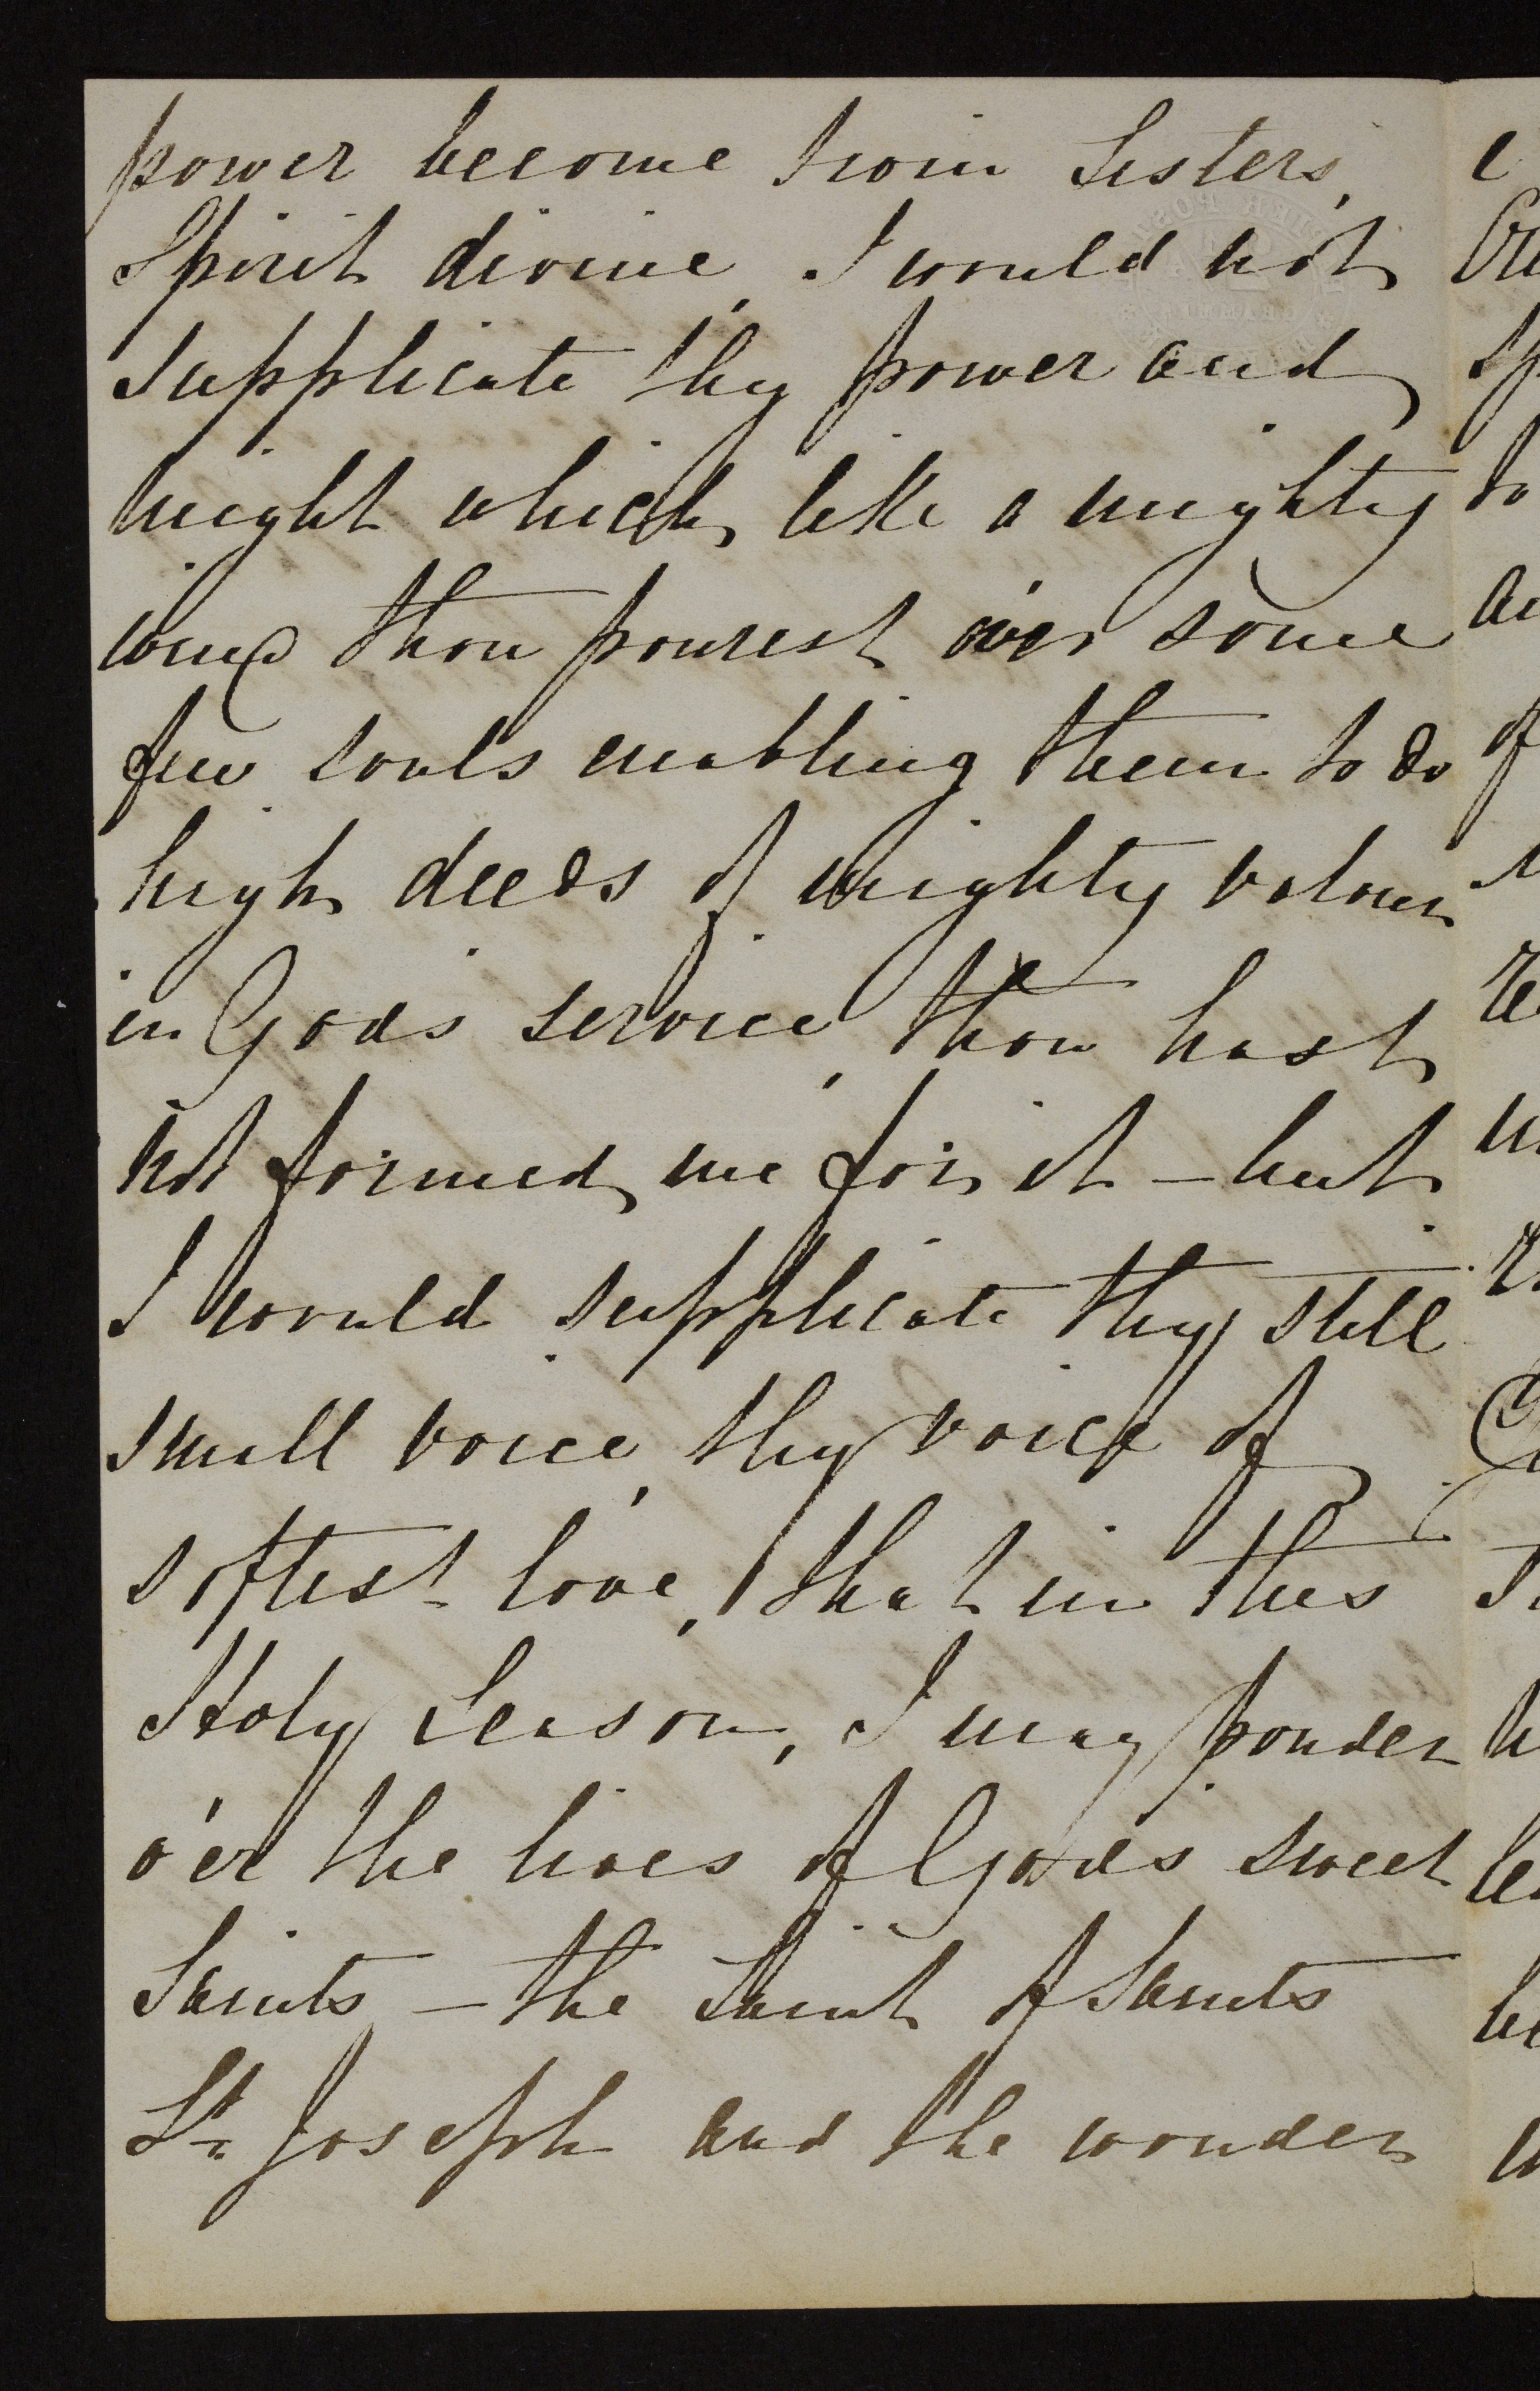 power become twin Sisters,
Spirit divine, I would not
supplicate thy power and
might which like a mighty
wind thou pourest o'er some
few souls enabling them to do
high deeds of mighty valour
in Gods service, thou hast
not formed me for it – but
I would supplicate thy still
small voice, thy voice of
softest love, that in this
Holy Season, I may ponder
o'er the lives of God's sweet
Saints – the Saint of Saints
St. Joseph and the wonder